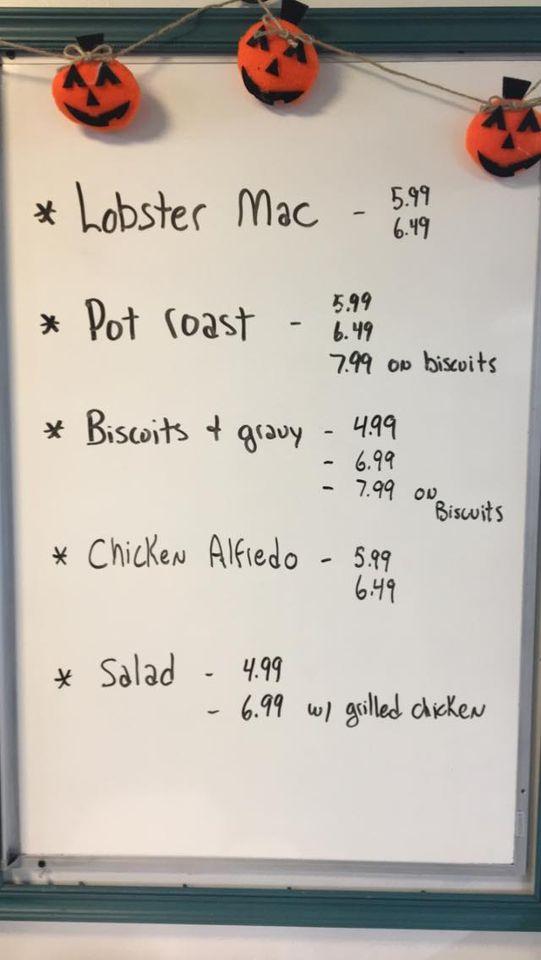 * Lobster Mac - 5.99
6.49
* Pot roast - 5.99
6.49
7.99 on biscuits
* Biscuits + gravy - 4.99
- 6.99
- 7.99 on
Biscuits
* Chicken Alfredo - 5.99
6.49
* Salad - 4.99
- 6.99 w/ grilled chicken